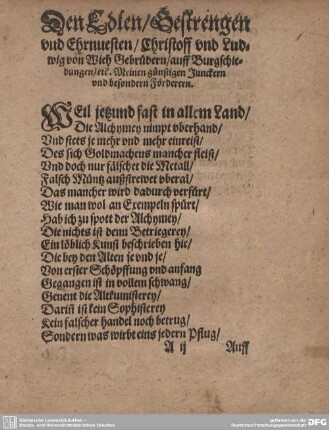 Den Edlen/Gestrengen
vnd Ehrnuesten/Christoff vnd Lud-
wig von Wieh Gebrüdern/auff Burgschie-
dungen/etc. Meinen günstigen Junckern
vnd besondern Förderern.
WEil jetzund fast in allem Land/
Die Alchymey nimpt vberhand/
Vnd stets je mehr vnd mehr einreist/
Des sich Goldmachens mancher fleist/
Vnd doch nur fälschet die Metall/
Falsch Müntz außstrewet vberal/
Das mancher wird dadurch verfürt/
Wie man wol an Exempeln spürt/
Hab ich zu spott der Alchymey/
Die nichts ist denn Betriegerey/
Ein löblich Kunst beschrieben hie/
Die bey den Alten je vnd je/
Von erster Schöpffung vnd anfang
Gegangen ist in vollem schwang/
Genent die Altkumisterey/
Dariñ ist kein Sophisterey
Kein falscher handel noch betrug/
Sondern was wirbt eins jedern Pflug/
A ij Auff
SLUB
Sächsische Landesbibliothek -
Staats- und Universitätsbibliothek Dresden
gefördert von der
Deutschen Forschungsgemeinschaft
DFG